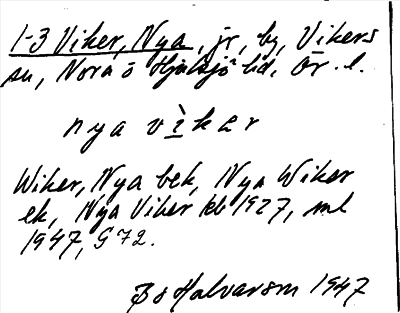 1-3 Viker, Nya, jr, by, Vikers
sn, Nora o Hjulsjö bd, Ör. l.
nya vìker
Wiker, Nya bek, Nya Wiker
ek, Nya Viker kb 1927, ml
1947, G 72.
B s Halvarsm 1947